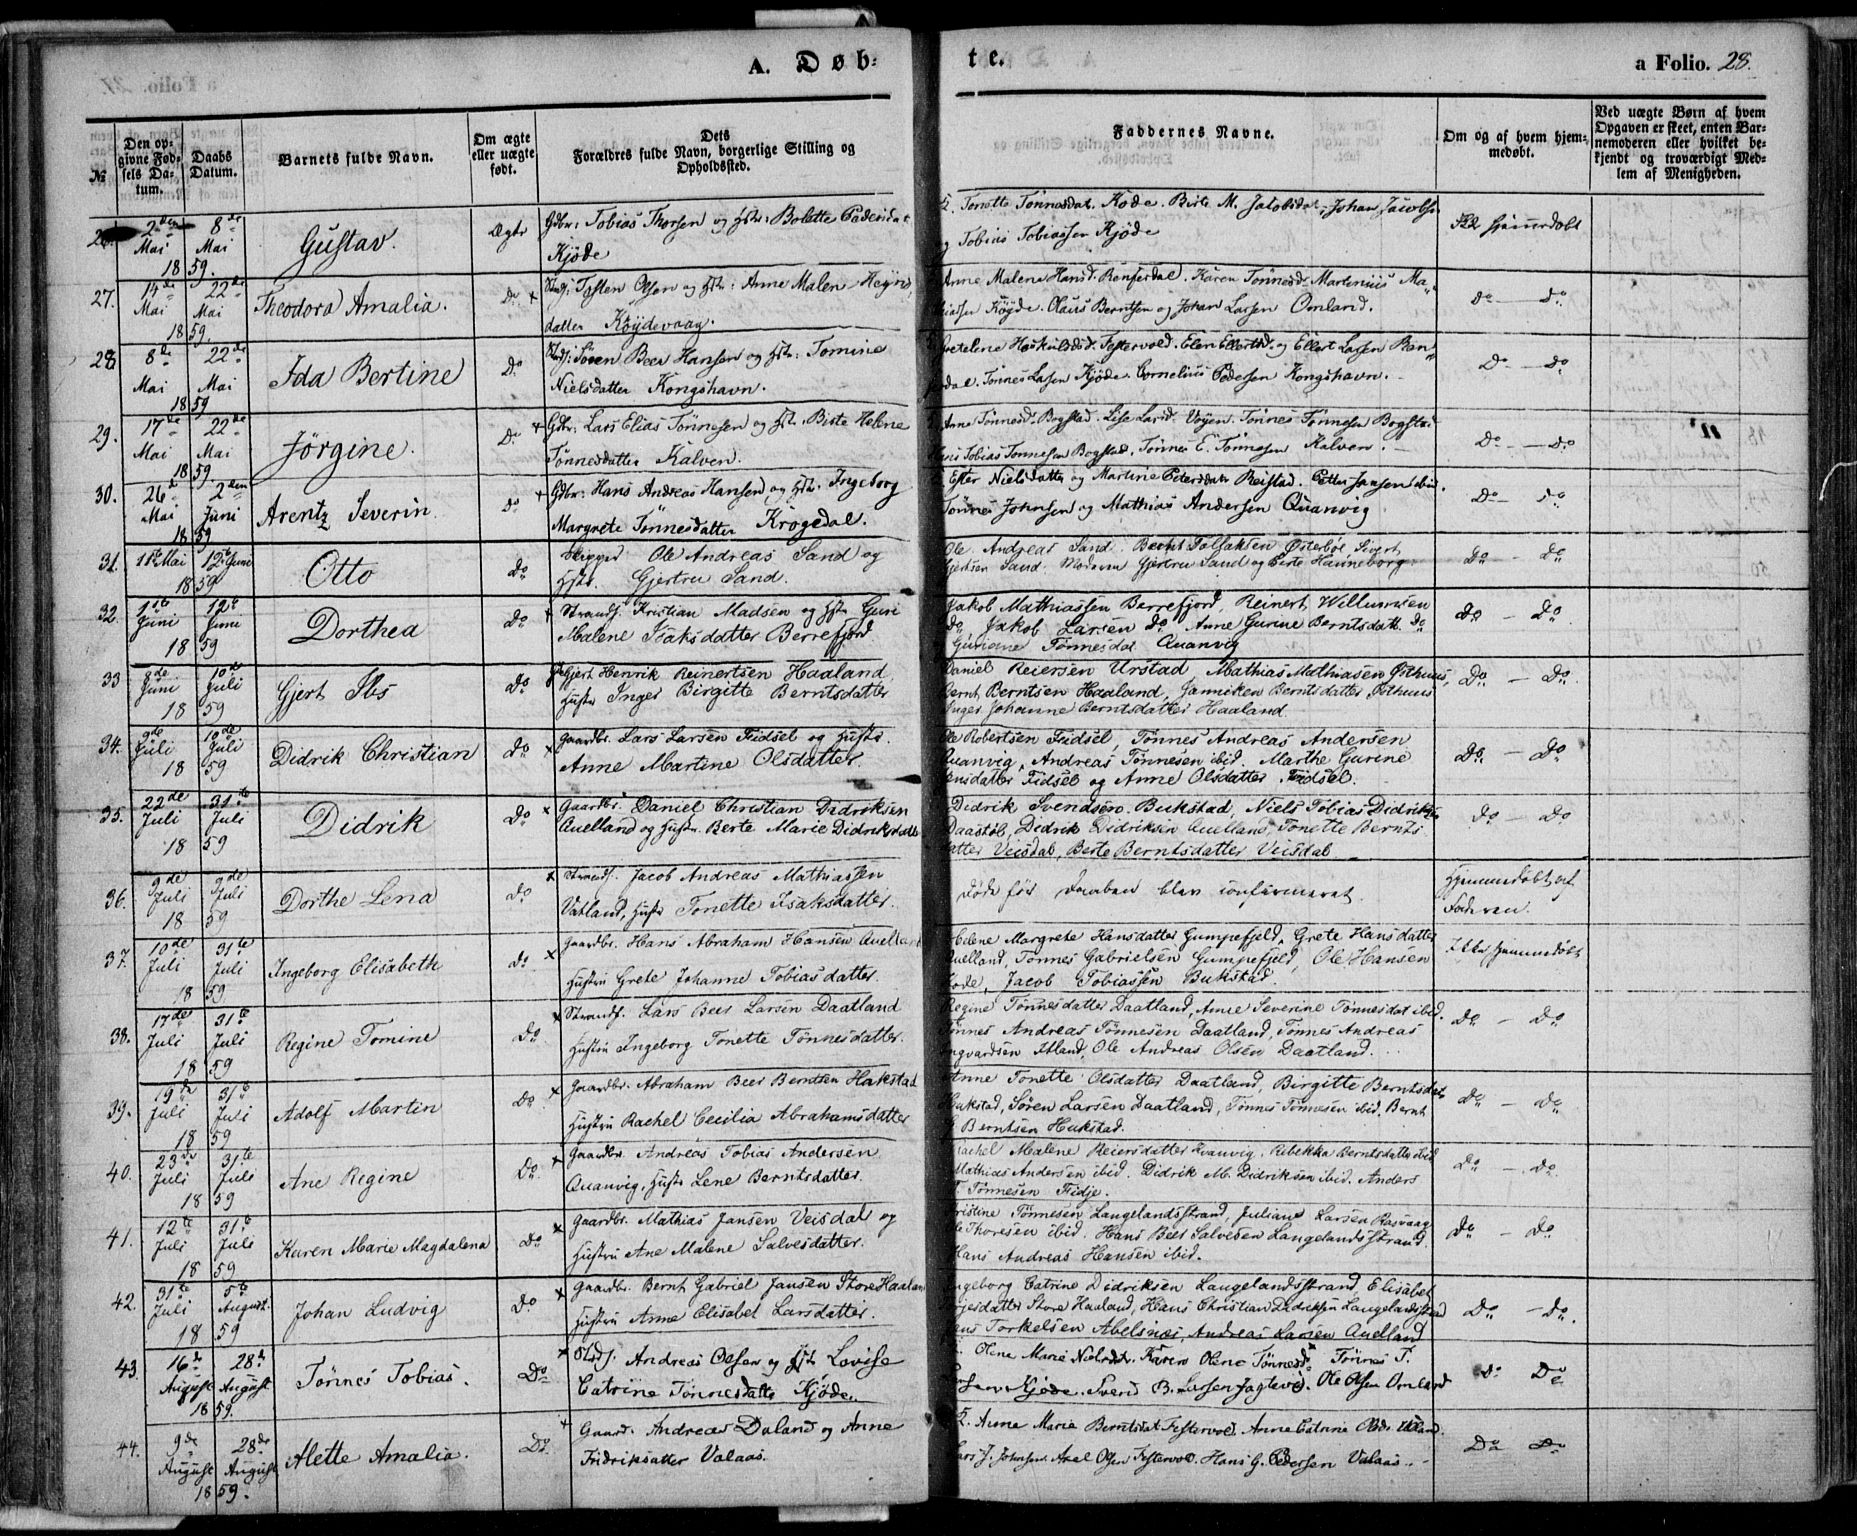 A. Døb-
te.
a Folio. 28.
№
Den op-
givne Fød-
sels Da-
tum.
Daabs
Datum.
Barnets fulde Navn.
Om ægte
eller uægte
født.
Dets
Forældres fulde Navn, borgerlige Stilling og
Opholdssted.
Faddernes Navne.
Om og af hvem hjem-
medøbt.
Ved uægte Børn af hvem
Opgaven er skeet, enten Bar-
nemoderen eller hvilket be-
kjendt og troværdigt Med-
lem af Menigheden.
26. 2den Mai 8de Mai 1859.
Gustav.
Ægte
Gdbr: Tobias Thorsen og Hst: Bolette Pedersdat
Kjøde
Tonette Tønnesdat. Kjøde. Birte M. Jakobsdat. Johan Jacobsen
og Tobias Tobiassen Kjøde
Ikke hjemmedøbt
27. 14de Mai 22de Mai 1859
Theodora Amalia.
Do
Stdsf: Tosten Olsen og Hst: Anne Malen Heyns
datter Köydevaag.
Anne Malene Hansd. Rensesdal. Karen Tønnesd. Martinius Ma-
thiassen Köyde. Olaus Berntsen og Johan Larsen Omland.
Do — Do
28 8de Mai 22de Mai 1859
Ida Bertine
Do
Stdsf: Søren Beer Hansen og Hst: Tomine
Nielsdatter Kongshavn.
Gretelene Heskulsd. Festervold. Elen Ellertsd. og Ellert Larsen Ren-
dal. Tønnes Larsen Kjöde. Cornelius Pedersen Kongshavn.
Do — Do
29. 17de Mai 22de Mai 1859
Jörgine.
Do
Gdbr: Lars Elias Tönnesen og Hst. Birte Helene
Tønnesdatter Kalven.
Anne Tønnesd. Bogstad. Lise Larsd. Vöyen. Tønnes Tønnesen Bogstad
Hans Tobias Tønnesen Bogstad. Tønnes E. Tønnesen Kalven.
Do — Do
30. 26de Mai 2den Juni 1859
Arentz Severin
Do
Gdbr: Hans Andreas Hansen og Hst. Ingeborg
Margrete Tønnesdatter Krogedal.
Ester Nielsdatter og Martine Petersdatr Reistad. Petter Jansen ibid.
Tønnes Johnsen og Mathias Andersen Quanvig
Do — Do
31. 11te Mai 12te Juni 1859
Otto
Do
Skipper Ole Andreas Sand og
Hstr. Gjertru Sand.
Ole Andreas Sand. Bernt Tollaksen Österböe, Sivert
Gjertsen Sand. Moderen Gjertru Sand og Berte Hanneborg
Do — Do
32. 1ste Juni 12te Juni 1859
Dorthea
Do
Strandf. Kristian Madsen og Hst Guri
Malene Isaksdatter Berrefjord
Jakob Mathiassen Berrefjord, Reinert Willumsen
Do, Jakob Larsen Do Anne Gurine Berntsdatt. Do
Guriane Tønnesdat. Quanvig
Do — Do
33 8de Juni 10de Juli 1859
Gjert Ibs
Do
Gjert Henrik Reinertsen Haaland,
Hustr Inger Birgitte Berntsdatter
Daniel Reiersen Urstad Mathias Mathiasen Østhuus,
Bernt Berntsen Haaland, Janniken Berntsdatter Østhuus
Inger Johanne Berntsdatter Haaland
Do — Do
34. 9de Juli 10de Juli 1859
Didrik Christian
Do
Gaardbr. Lars Larsen Fidsel og Hustr.
Anne Martine Olsdatter.
Ole Robertsen Fidsel, Tønnes Andreas Andersen
Quanvig, Andreas Tønnesen ibid. Marthe Gurine
Jensdatter Fidsel og Anne Olsdatter Fidsel.
Do — Do
35. 22de Juli 31te Juli 1859
Didrik
Do
Gaardbr. Daniel Christian Didriksen
Quelland og Hustr. Berte Marie Didriksdatt
Didrik Svendsen Bukstad, Niels Tobias Didriksen
Daastöl, Didrik Didriksen Quelland, Tonette Bernts
datter Veisdal, Berte Berntsdatter Veisdal
Do — Do
36. 9de Juli 9de Juli 1859
Dorthe Lena
Do
Strandf. Jacob Andreas Mathiassen
Vatland, Hustr Tonette Isaksdatter.
døde før Daaben blev confirmeret.
Hjemmedøbt af
Faderen.
37. 10de Juli 31te Juli 1859
Ingeborg Elisabeth
Do
Gaardbr. Hans Abraham Hansen Quelland
Hustru Grete Johanne Tobiasdatter.
Helene Margrete Hansdatter Gumpefjeld, Grete Hansdatter
Quelland, Tønnes Gabrielsen Gumpefjeld, Ole Hansen
, Jacob Tobiassen Bukstad.
Ikke hjemmedøbt
38. 17de Juli 31te Juli 1859
Regine Tomine
Do
Strandf. Lars Beer Larsen Daatland
Hustru Ingeborg Tonette Tønnesdatter.
Regine Tønnesdatter Daatland, Anne Severine Tønnesdat ibid.
Tønnes Andreas Tønnesen Daatland, Tønnes Andreas
Ingvardsen Itland, Ole Andreas Olsen Daatland.
Do — Do
39. 19de Juli 31te Juli 1859
Adolf Martin
Do
Gaardbr. Abraham Beer Berntsen Hukstad
Hustru Rachel Cecilia Abrahamsdatter
Anne Tonette Olsdatter Daatland, Birgitte Berntsdatr
Hukstad, Søren Larsen Daatland, Tønnes Tønnesen ibid. Bernt
Berntsen Hukstad.
Do — Do
40. 23de Juli 31te Juli 1859
Ane Regine
Do
Gaardbr. Andreas Tobias Andersen
Quanvig, Hustr Lene Berntsdatter.
Rachel Malene Reiersdatter Quanvig, Rebekka Berntsdatter ibid
Mathias Andersen ibid. Didrik M. Didriksen ibid. Anders
T. Tønnesen Fidje.
Do — Do
41. 12te Juli 31te Juli 1859
Karen Marie Magdalena
Do
Gaardbr. Mathias Jansen Veisdal og
Hustru Ane Malene Salvesdatter.
Kristine Tønnesen Langelandsstrand, Juliane Larsen Rasvaag
Ole Thoresen ibid. Hans Beer Salvesen Langelandsstrand
Hans Andreas Hansen ibid.
Do — Do
42. 31te Juli 5te August. 1859
Johan Ludvig
Do
Gaardbr. Bernt Gabriel Jansen Store Haaland
Hustru Anne Elisabet Larsdatter.
Ingeborg Catrine Didriksen Langelandsstrand, Elisabet
Store Haaland, Hans Christian Didriksen Langelandsstrand
Torkelsen Abelsnæs, Andreas Larsen Quelland
Do — Do.
43. 16de August 28de August 1859.
Tønnes Tobias.
Do
Stdsf. Andreas Olsen og Hst Lovise
Catrine Tønnesdatte Kjøde.
Olene Marie Nielsdt. Karen Olene Tønnesd. Tønnes T.
Kjøde. Sverd B. Larsen Jagtevig. Ole Olsen Omland
Do Do
44. 9de August 28de August 1859.
Alette Amalia.
Do
Gaard. Andreas Daland og Anne
Fridriksatter Valaas.
Anna Maria Berntsdat Festervold. Anne Catrine Olsdr Uland.
Lars J. Johnsen. Axel Olsen Festervold. Hans G. Pedersen Valaas.
Do Do